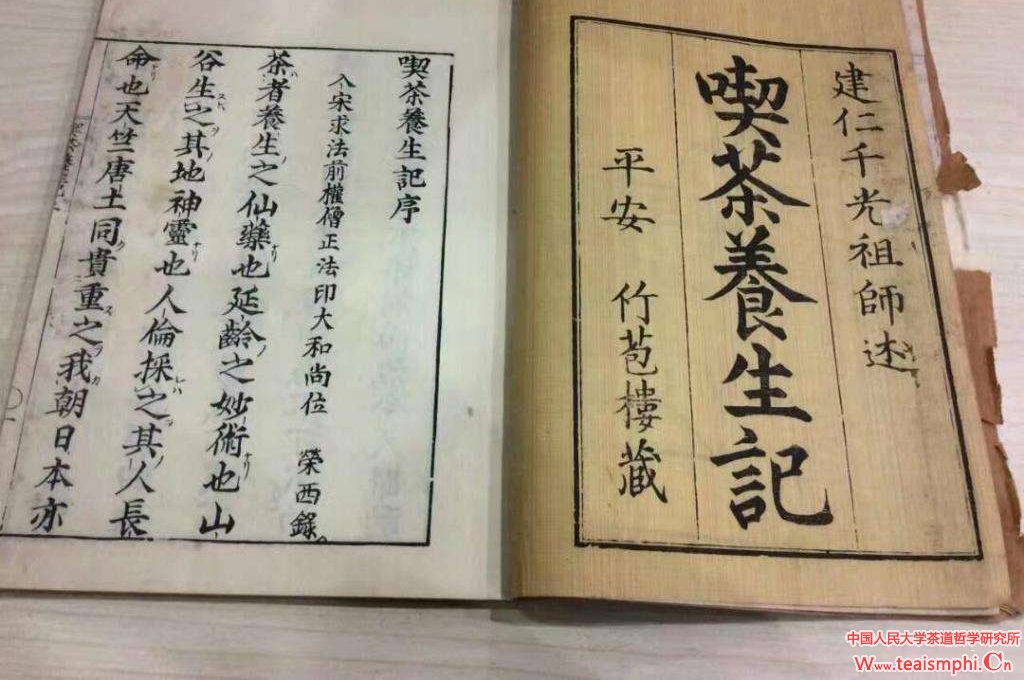 建仁千光祖師述
喫茶養生記
平安 竹苞樓蔵
喫茶養生記序
入宋求法前權僧正法印大和尚位 榮西錄
茶者養生之仙藥也延齡之妙術也山
谷生之其地神靈也人倫採之其人長
命也天竺唐土同貴重之我朝日本亦
中国人民大学茶道哲学研究所
Www.teaismphi.Cn